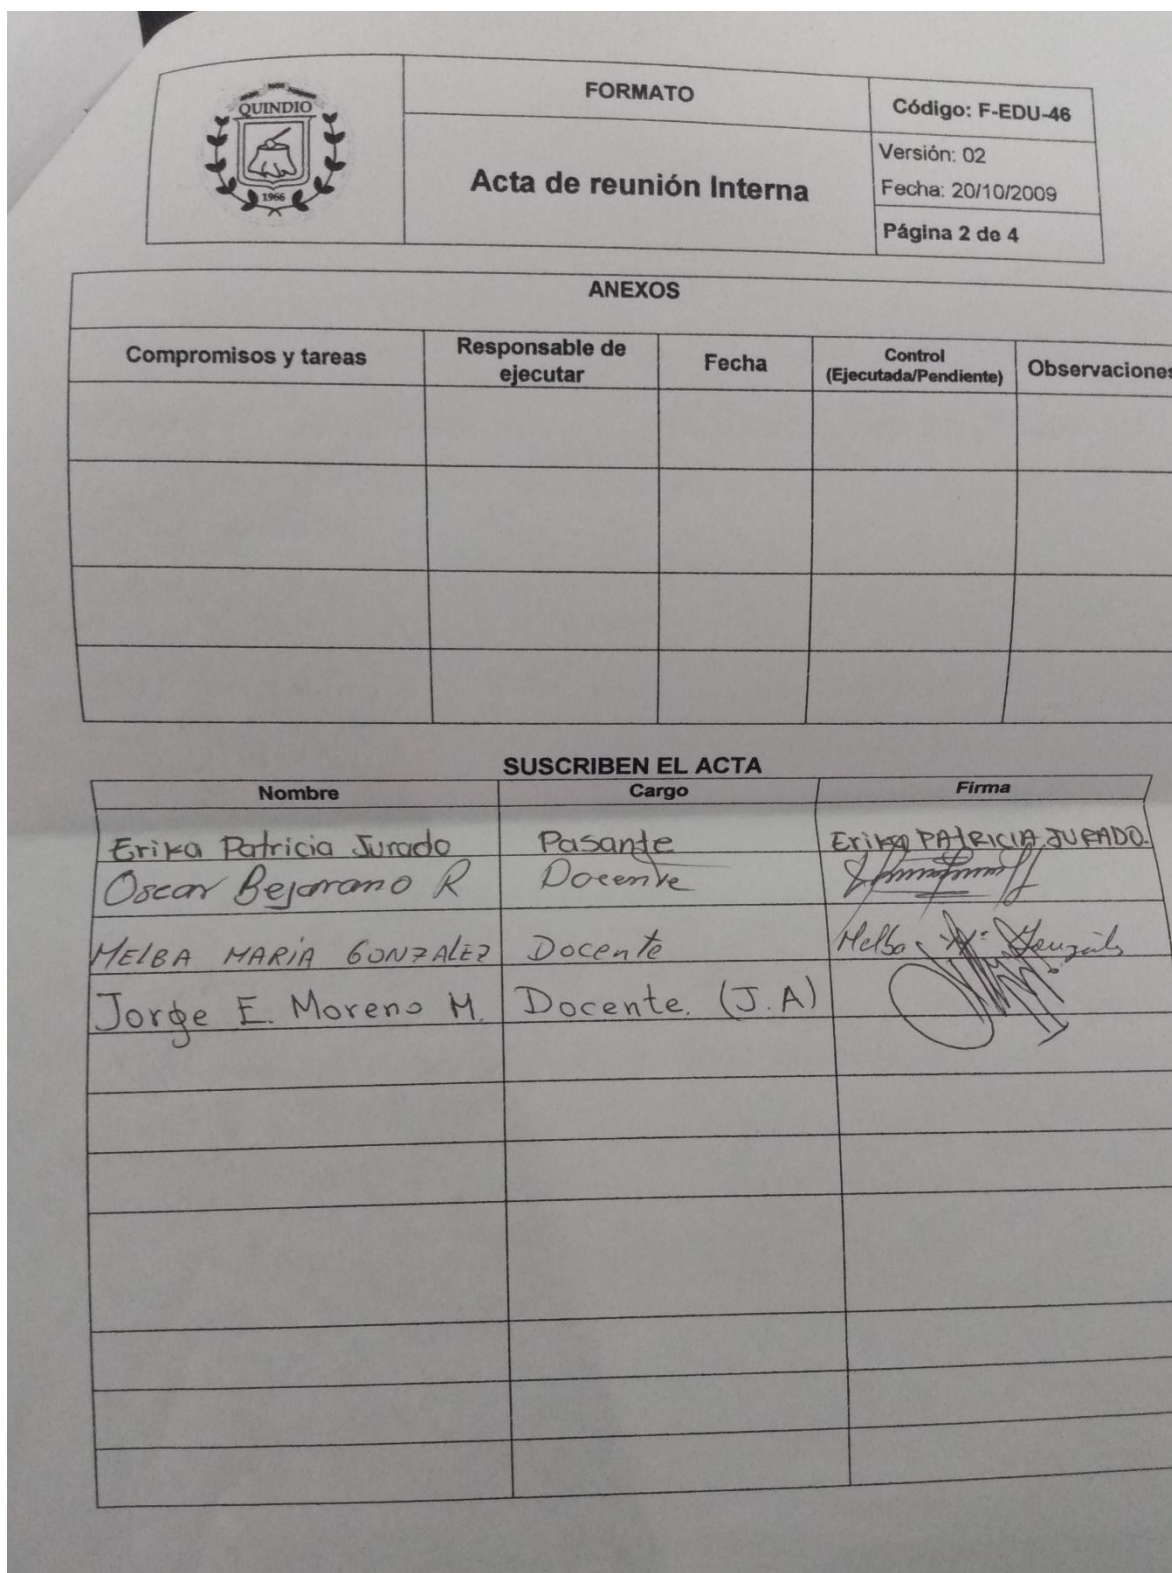 QUINDIO
1966
FORMATO
Acta de reunión Interna
Código: F-EDU-46
Versión: 02
Fecha: 20/10/2009
Página 2 de 4
ANEXOS
Compromisos y tareas
Responsable de
ejecutar
Fecha
Control
(Ejecutada/Pendiente)
Observaciones
SUSCRIBEN EL ACTA
Nombre Cargo Firma
Erika Patricia Jurado Pasante Erika PATRICIA JURADO.
Oscar Bejarano R Docente
MELBA MARIA GONZALEZ Docente Melba Mª González
Jorge E. Moreno M. Docente. (J.A)